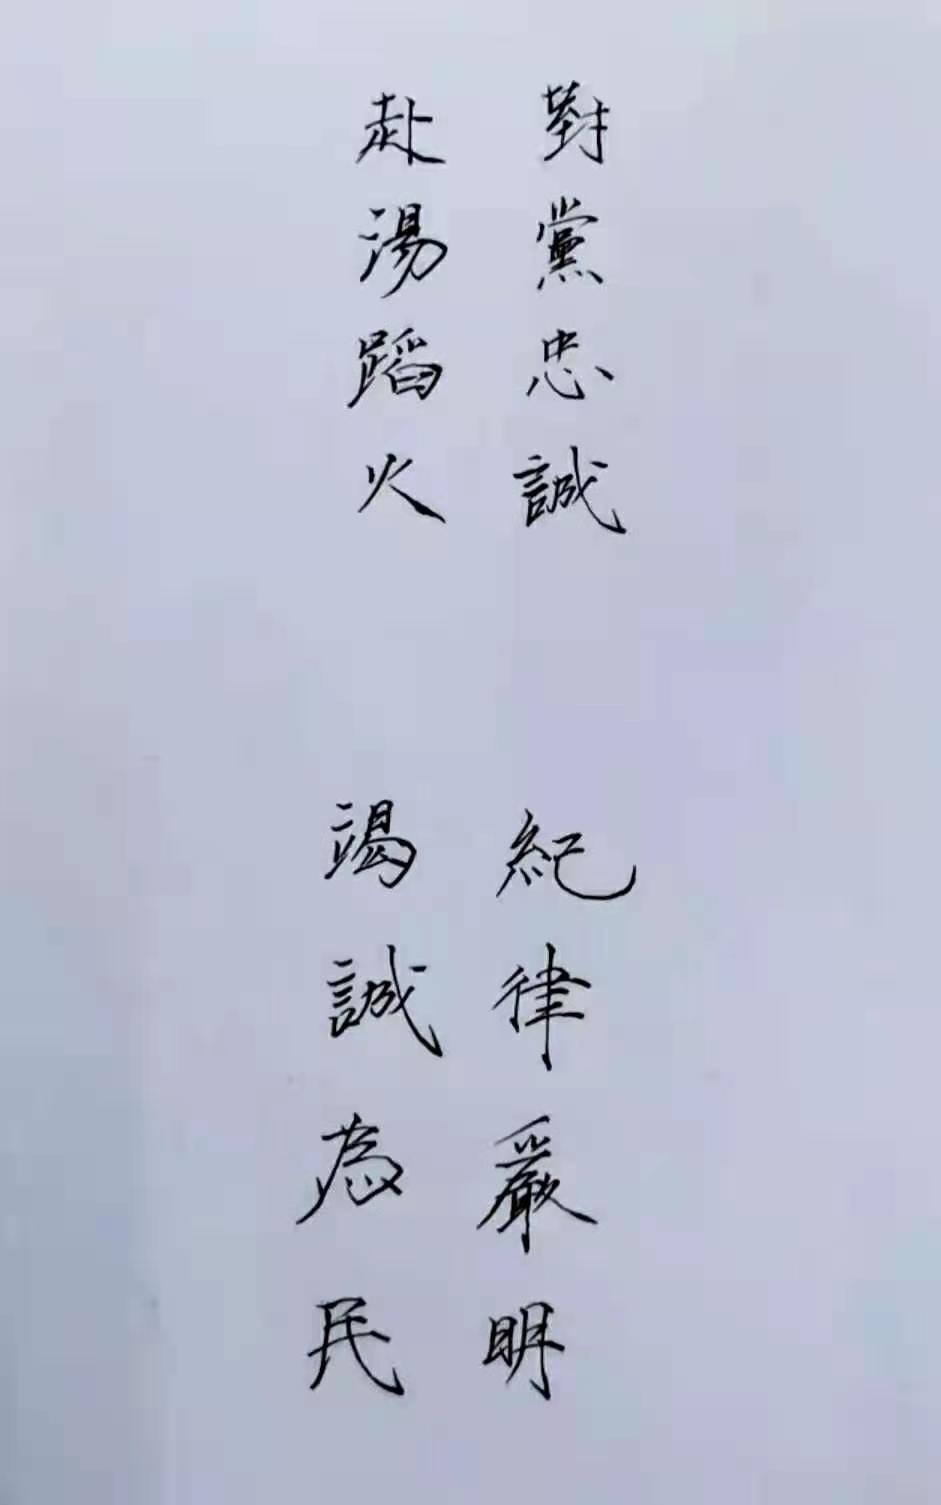 對黨忠誠
紀律嚴明
赴湯蹈火
竭誠為民